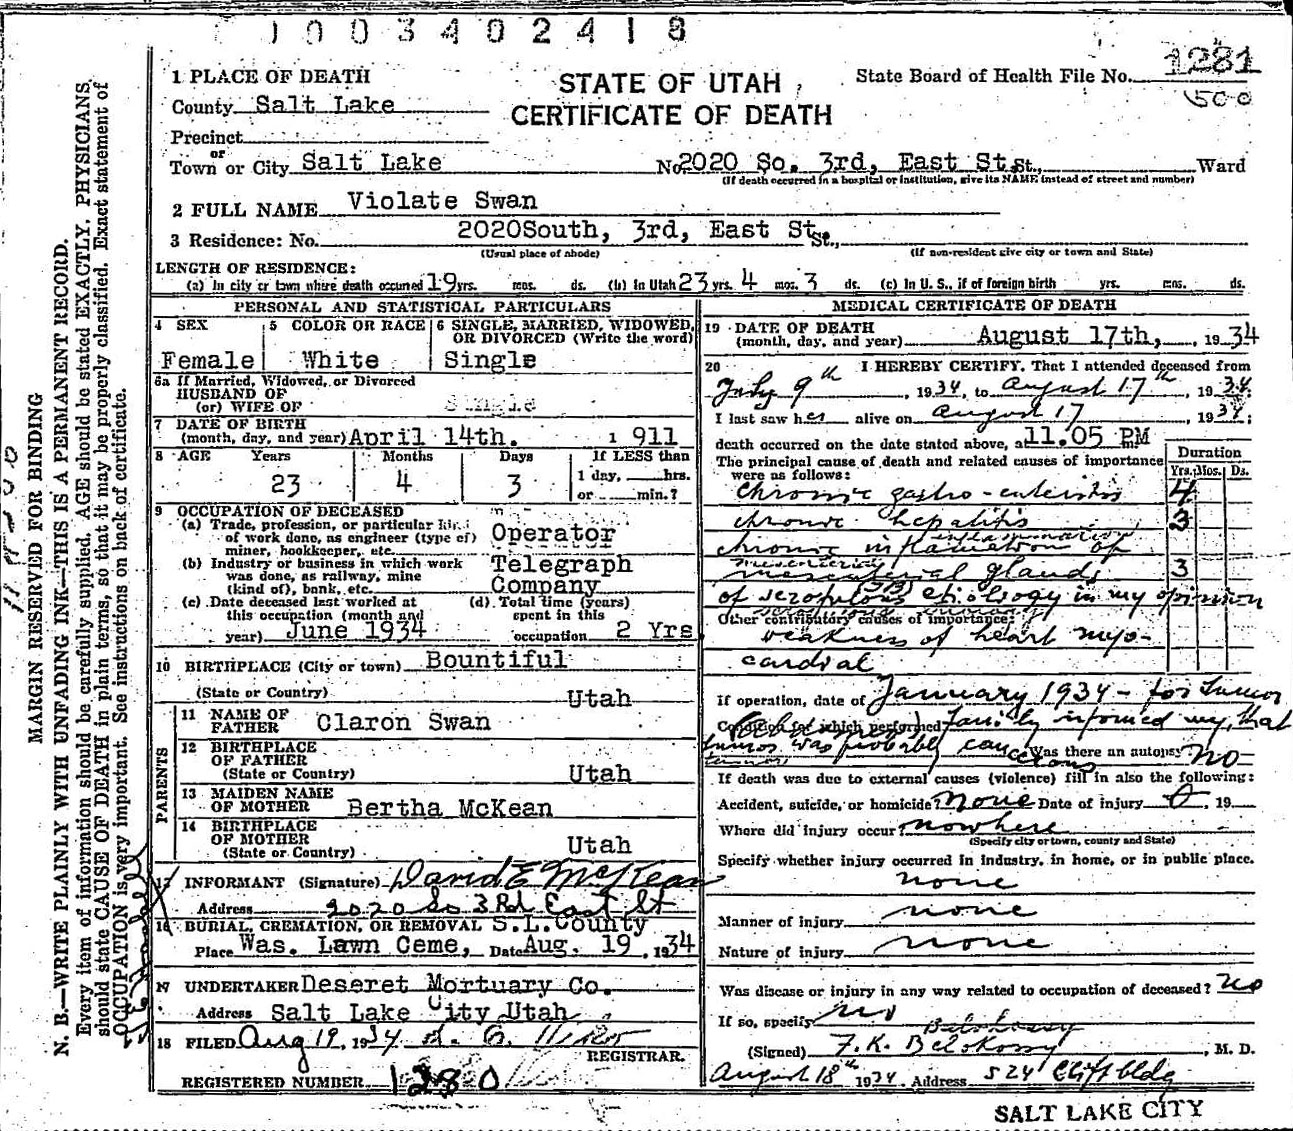 1003402418
1 PLACE OF DEATH
STATE OF UTAH
CERTIFICATE OF DEATH
State Board of Health File No. 1281
500
County Salt Lake
Precinct
or
Town or City Salt Lake No. 2020 So. 3rd, East St. St., Ward
(If death occurred in a hospital or institution, give its NAME instead of street and number)
2 FULL NAME Violate Swan
3 Residence: No. 2020South, 3rd, East St. St.,
(Usual place of abode) (If non-resident give city or town and State)
LENGTH OF RESIDENCE:
(a) In city or town where death occurred 19 yrs. mos. ds. (b) In Utah 23 yrs. 4 mos. 3 ds. (c) In U. S., if of foreign birth yrs. mos. ds.
PERSONAL AND STATISTICAL PARTICULARS
4 SEX 5 COLOR OR RACE 6 SINGLE, MARRIED, WIDOWED, OR DIVORCED (Write the word)
Female White Single
6a If Married, Widowed, or Divorced
HUSBAND OF
(or) WIFE OF Single
7 DATE OF BIRTH
(month, day, and year) April 14th. 1 911
8 AGE Years Months Days If LESS than
1 day, hrs.
or min.?
23 4 3
9 OCCUPATION OF DECEASED
(a) Trade, profession, or particular kind
of work done, as engineer (type of)
miner, bookkeeper, etc. Operator
(b) Industry or business in which work
was done, as railway, mine
(kind of), bank, etc. Telegraph
Company
(c) Date deceased last worked at
this occupation (month and
year) June 1934
(d) Total time (years)
spent in this
occupation 2 Yrs
10 BIRTHPLACE (City or town) Bountiful
(State or Country) Utah
PARENTS
11 NAME OF
FATHER Claron Swan
12 BIRTHPLACE
OF FATHER
(State or Country) Utah
13 MAIDEN NAME
OF MOTHER Bertha McKean
14 BIRTHPLACE
OF MOTHER
(State or Country) Utah
INFORMANT (Signature) David E McKean
Address 2020 So 3Rd East St
16 BURIAL, CREMATION, OR REMOVAL S.L.County
Place Was. Lawn Ceme, Date Aug. 19 , 1934
17 UNDERTAKER Deseret Mortuary Co.
Address Salt Lake City Utah
18 FILED Aug 19, 1934
REGISTRAR.
REGISTERED NUMBER 1280
MEDICAL CERTIFICATE OF DEATH
19 DATE OF DEATH
(month, day, and year) August 17th, , 1934
20 I HEREBY CERTIFY, That I attended deceased from
July 9th , 1934, to August 17th , 1934
I last saw her alive on August 17 , 1934;
death occurred on the date stated above, at 11.05 PM
The principal cause of death and related causes of importance
were as follows:
Duration
Yrs. Mos. Ds.
chronic gastro-enteritis 4
chronic hepatitis 3
inflammation
chronic inflamation of
mesenterial glands 3
of scrofulous etiology in my opinion
Other contributory causes of importance:
weakness of heart myo-
cardial
If operation, date of January 1934 - for tumor
Condition for which performed Family informed my, that
tumor was probably cancerous
tumor
Was there an autopsy No
If death was due to external causes (violence) fill in also the following:
Accident, suicide, or homicide? none Date of injury 0, 19
Where did injury occur? nowhere
(Specify city or town, county and State)
Specify whether injury occurred in industry, in home, or in public place.
none
Manner of injury none
Nature of injury none
Was disease or injury in any way related to occupation of deceased? no
If so, specify no
(Signed) F. K. Belskossy , M. D.
August 18th 1934 Address 524 Clift bldg
SALT LAKE CITY
MARGIN RESERVED FOR BINDING
N. B.—WRITE PLAINLY WITH UNFADING INK—THIS IS A PERMANENT RECORD.
Every item of information should be carefully supplied. AGE should be stated EXACTLY. PHYSICIANS
should state CAUSE OF DEATH in plain terms, so that it may be properly classified. Exact statement of
OCCUPATION is very important. See instructions on back of certificate.